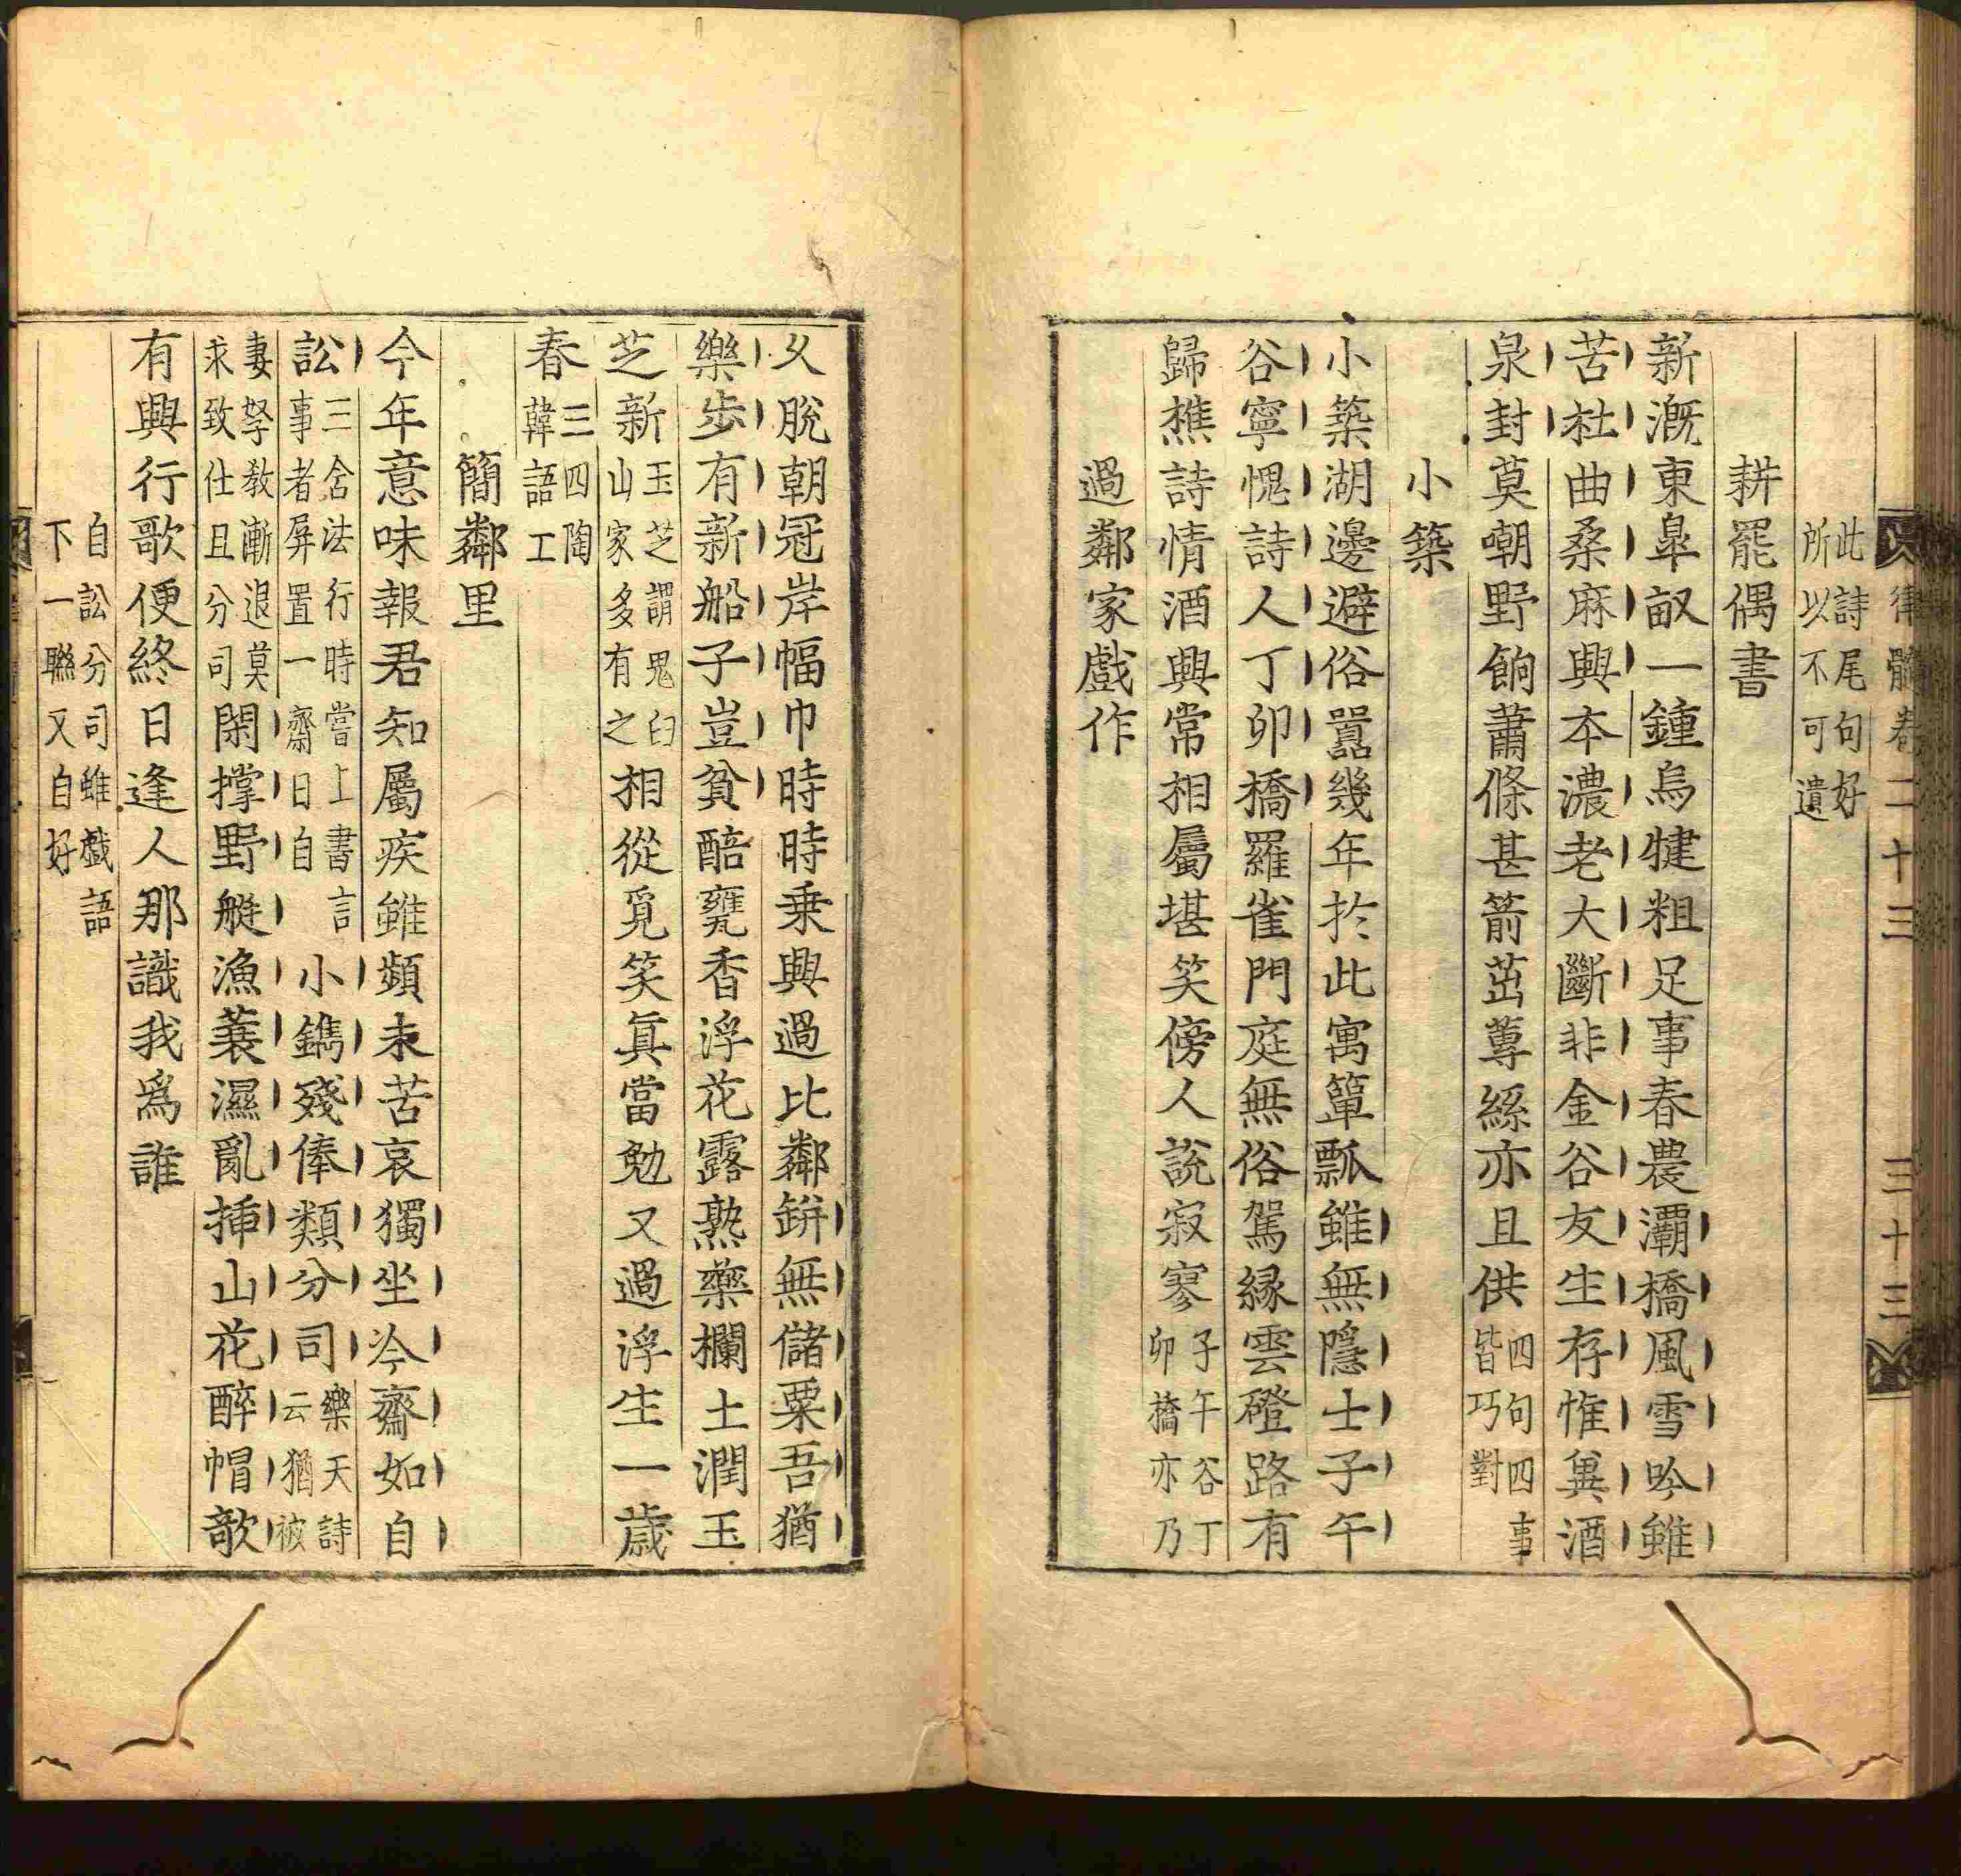 律髓卷二十三 三十三
此詩尾句好
所以不可遺
耕罷偶書
新溉東臯畝一鍾烏犍粗足事春農灞橋風雪吟雖
苦杜曲桑麻興本濃老大斷非金谷友生存惟兾酒
泉封莫嘲野餉蕭條甚箭茁蓴絲亦且供四句四事
皆巧對
小築
小築湖邊避俗囂幾年於此寓簞瓢雖無隱士子午
谷寧愧詩人丁卯橋羅雀門庭無俗駕縁雲磴路有
歸樵詩情酒興常相屬堪笑傍人說寂寥子午谷丁
卯橋亦乃
過鄰家戲作
乆脫朝冠岸幅巾時時乗興過比鄰缾無儲粟吾猶
樂步有新船子豈貧醅甕香浮花露熟藥欄土潤玉
芝新玉芝謂鬼臼
山家多有之相從覓笑眞當勉又過浮生一歳
春三四陶
韓語工
簡鄰里
今年意味報君知屬疾雖頻未苦哀獨坐冷齋如自
訟三舍法行時嘗上書言
事者屏置一齋日自小鐫殘俸類分司樂天詩
云猶被
妻孥敎漸退莫
求致仕且分司閑撑野艇漁蓑濕亂揷山花醉帽欹
有興行歌便終日逢人那識我爲誰
自訟分司雖戯語
下一聯又自好